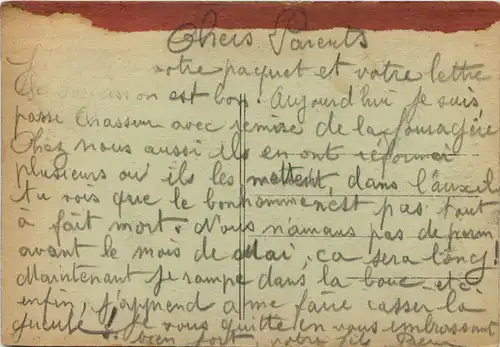 Chers Parents
votre paquet et votre lettre
est bon. Aujourd'hui je suis
passé Chasseur avec remise de la fouragère
Chez nous aussi ils en ont réformer
plusieurs ou ils les mettent, dans l'auxil
tu vois que le bonhomme n'est pas tout
à fait mort. Nous n'aurons pas de perm
avant le mois de Mai, ça sera long!
Maintenant je rampe dans la boue etc
enfin, j'apprend a me faire casser la
gueule! Je vous quitte en vous embrassant
bien fort, votre fils